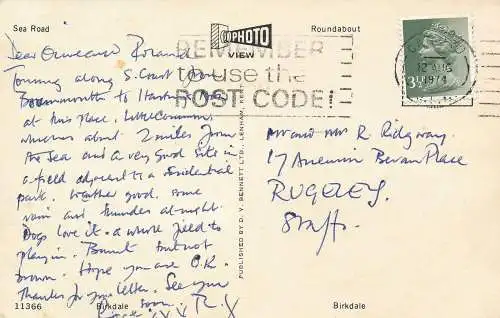 Sea Road
Roundabout
PHOTO
VIEW
REMEMBER
to use the
POST CODE!
AUG
1974
3½P
Dear and Roland
Touring along S. Coast from
Bournemouth to
at this place, Littlecommon,
which is about 2 miles from
the Sea and a very good site in
a field adjacent to a residential
park. Weather good. Some
rain and thunder at night.
Dogs love it - a whole field to
play in. Burnt but not
brown. Hope you are O.K.
Thanks for your letter. See you
soon. R. X
XXX
Mr and Mrs R Ridgway.
17 Aneurin Bevan Place
RUGELEY.
Staffs.
PUBLISHED BY D. V. BENNETT LTD., LENHAM, KENT
11366
Birkdale
Birkdale